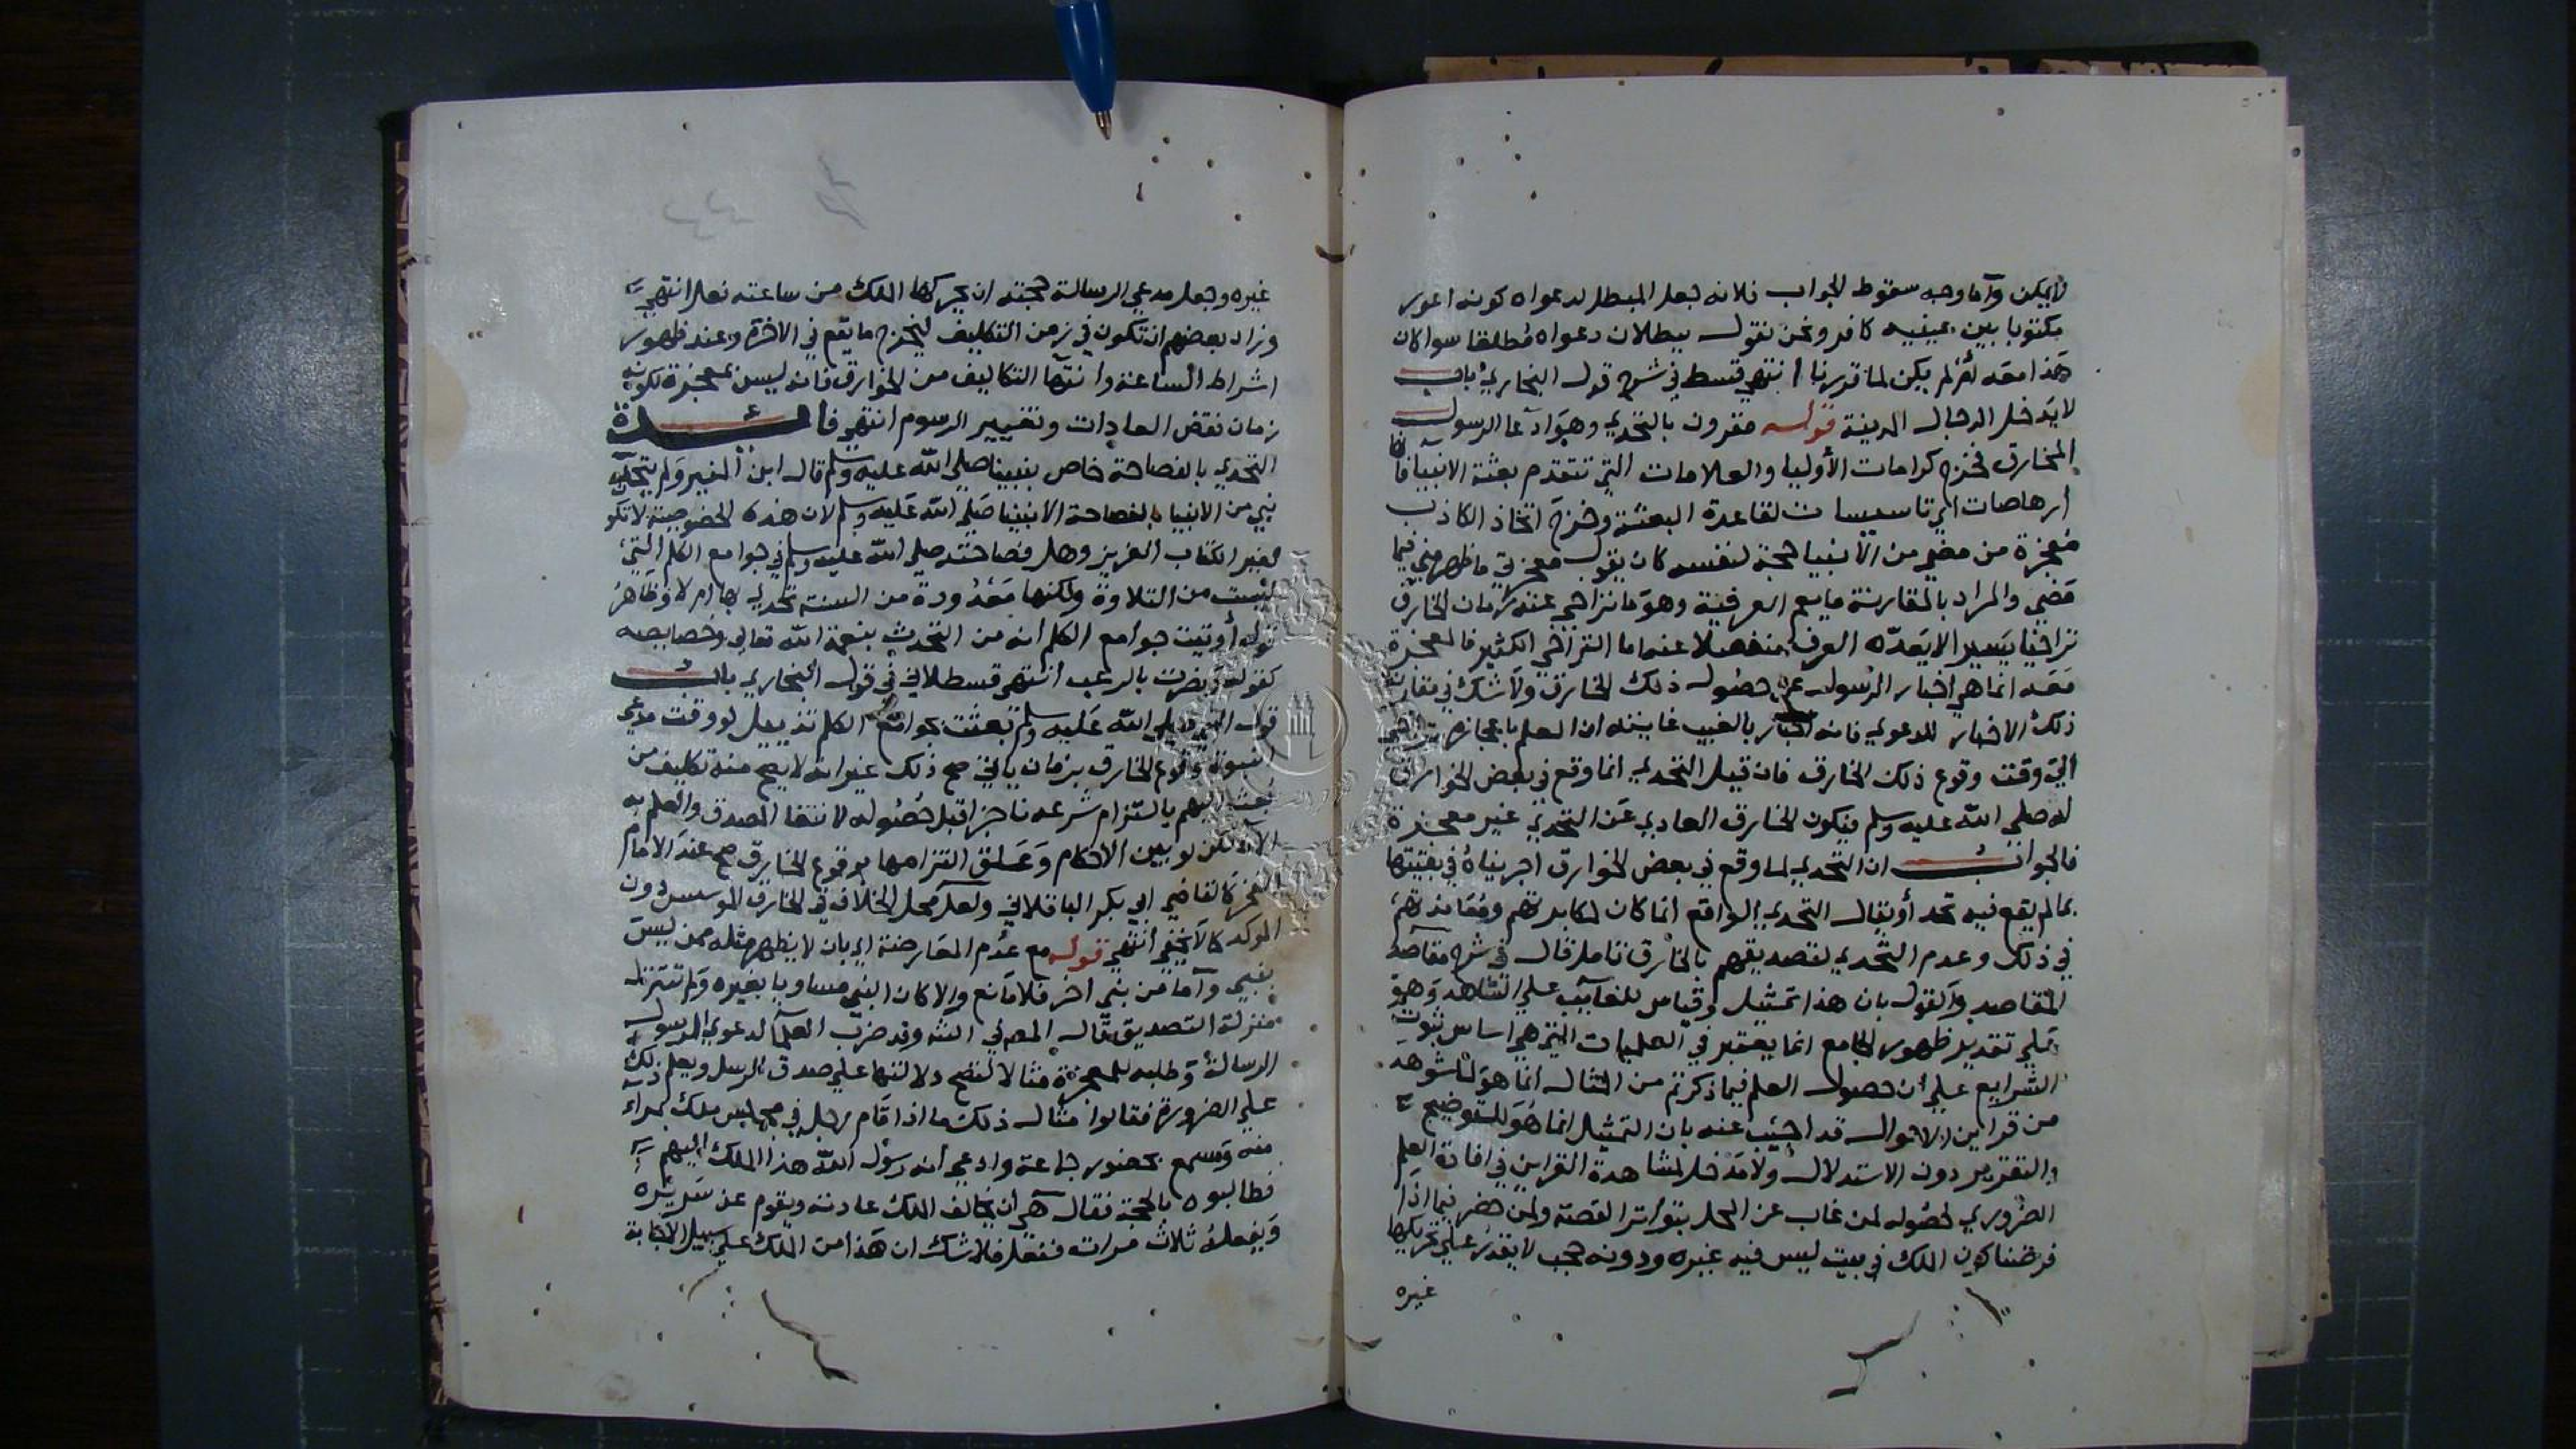 لا يمكن وأما وجه سقوط الجواب فلانه جعل المبطل لدعواه كونه اعور
مكتوبا بين عينيه كافر ونحن نقول ببطلان دعواه مطلقا سوا كان
هذا معه أم لم يكن لما قررنا انتهى قسط في شرح قول البخاري باب
لا يدخل الدجال المدينة قوله مقرون بالتحدي وهو ادعا الرسول
المخارق فخرج كرامات الأوليا والعلامات التي تتقدم بعثة الانبيا فانها
ارهاصات اي تاسيسات لقاعدة البعثة وخرج اتخاذ الكاذب
معجزة من مضى من الأنبيا حجة لنفسه كان يقول معجزتي ما ظهر مني فيما
مضي والمراد بالمقارنة ما يعم العرفية وهو ما تراخي عنه زمان الخارق
تراخيا يسيرا لا يعده العرف منفصلا عنه اما التراخي الكثير فالمعجزة
معه انما هي اخبار الرسول عن حصول ذلك الخارق ولا شك في مقارنة
ذلك الاخبار للدعوي فانه اخبار بالغيب غايته ان العلم باعجازه تراخي
الي وقت وقوع ذلك الخارق فان قيل التحدي انما وقع في بعض الخوارق
له صلي الله عليه وسلم فيكون الخارق العادي عن التحدي غير معجزة
فالجواب ان التحدي لما وقع في بعض الخوارق اجريناه في بقيتها
مما لم يقع فيه تحد أو يقال التحدي الواقع انما كان لمكابرتهم ومعاندتهم
في ذلك وعدم التحدي لتصديقهم بالخارق تامل قال في شرح مقاصد
المقاصد والقول بان هذا تمثيل وقياس للغايب علي الشاهد وهو
علي تقدير ظهور الجامع انما يعتبر في العمليات التي هي اساس ثبوت
الشرايع علي ان حصول العلم فيما ذكرتم من المثال انما هو لما شوهد
من قراين الاحوال قد اجيب عنه بان التمثيل انما هو للتوضيح
والتقرير دون الاستدلال ولا مدخل لمشاهدة القراين في افادة العلم
الضروري لحصوله لمن غاب عن المحل بتواتر القصة ولمن حضر فيما اذا
فرضنا كون الملك في بيت ليس فيه غيره ودونه حجب لا يقدر علي تحريكها
غيره
غيره وجعل مدعي الرسالة حجته ان يحركها الملك من ساعته ففعل انتهى
وزاد بعضهم ان تكون في زمن التكليف ليخرج ما يقع في الاخرة وعند ظهور
اشراط الساعة وانتها التكاليف من الخوارق فانه ليس بمعجزة لكونه
زمان نقض العادات وتغيير الرسوم انتهى فائدة
التحدي بالفصاحة خاص بنبينا صلي الله عليه وسلم قال ابن المنير ولم يتحد
نبي من الانبيا بالفصاحة الا نبينا صلي الله عليه وسلم لان هذه الخصوصية لا تكون
لغير الكتاب العزيز وهل فصاحته صلي الله عليه وسلم في جوامع الكلم التي
ليست من التلاوة ولكنها معدودة من السنة تحدي بها ام لا وظاهر
قوله أوتيت جوامع الكلم انه من التحدث بنعمة الله تعالي وخصايصه
كقوله ونصرت بالرعب انتهى قسطلاني في قول البخاري باب
قول النبي صلي الله عليه وسلم بعثت بجوامع الكلم تذييل لو وقت مدعي
النبوة وقوع الخارق بزمان ياتي صح ذلك غير انه لا يصح منه تكليف من
بعث اليهم بالتزام شرعه ناجزا قبل حصوله لانتفا المصدق والعلم به
الآن لكن لو بين الاحكام وعلق التزامها بوقوع الخارق صح عند الامام
الفخر كالقاضي ابي بكر الباقلاني ولعل محل الخلاف في الخارق الموسس دون
الموكد كما لا يخفي انتهي قوله مع عدم المعارضة اي بان لا يظهر مثله ممن ليس
بنبي وأما من نبي اخر فلا مانع والا كان النبي مساويا بغيره ولم تتنزل
منزلة التصديق قال المص في الشه وقد ضرب العلما لدعوي الرسول
الرسالة وطلبه للمعجزة مثالا لتضح دلالتها علي صدق الرسل ويعلم ذلك
علي الضرورة فقالوا مثال ذلك ما اذا قام رجل في مجلس ملك بمرآي
منه ومسمع بحضور جماعة وادعي انه رسول الله هذا الملك اليهم
فطالبوه بالحجة فقال هي ان يخالف الملك عادته ويقوم عن سريره
ويفعله ثلاث مرات ففعل فلا شك ان هذا من الملك علي سبيل الاجابة